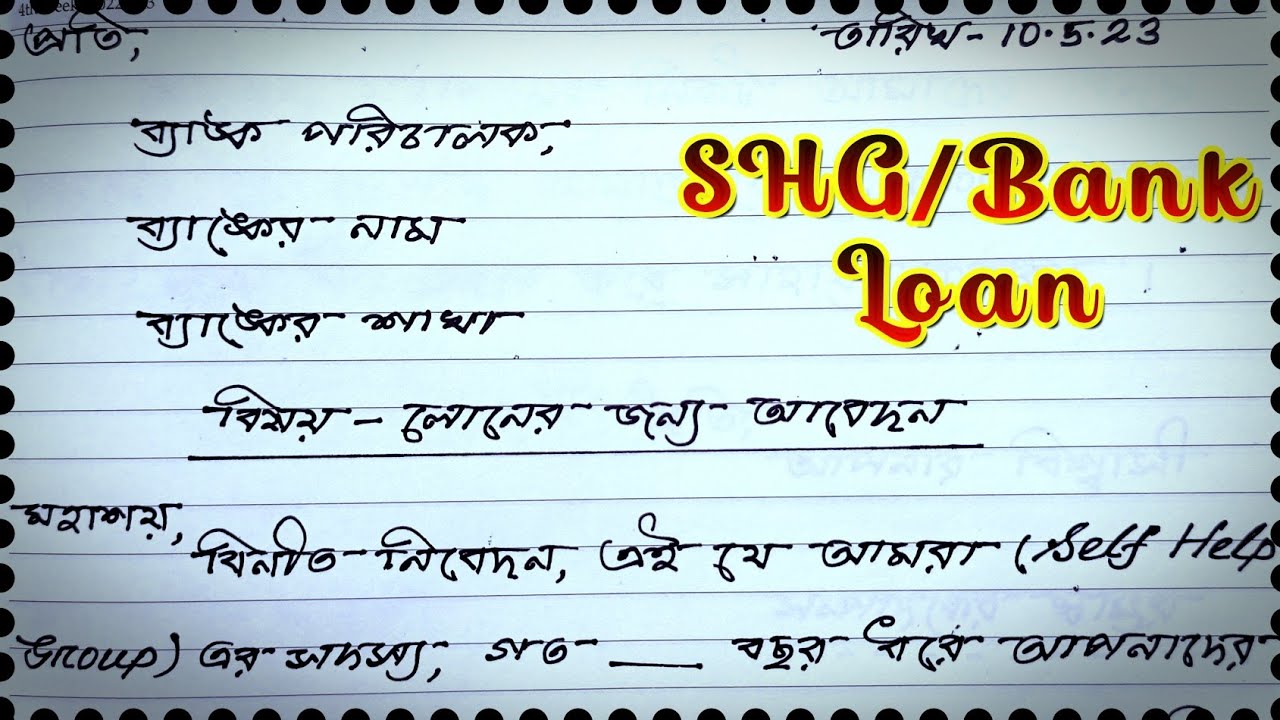 প্রতি,
তারিখ - 10.5.23
ব্যাঙ্ক পরিচালক,
SHG/Bank
Loan
ব্যাঙ্কের নাম
ব্যাঙ্কের শাখা
বিষয় - লোনের জন্য আবেদন
মহাশয়,
বিনীত নিবেদন, এই যে আমরা (Self Help
Group) এর সদস্য, গত ____ বছর ধরে আপনাদের